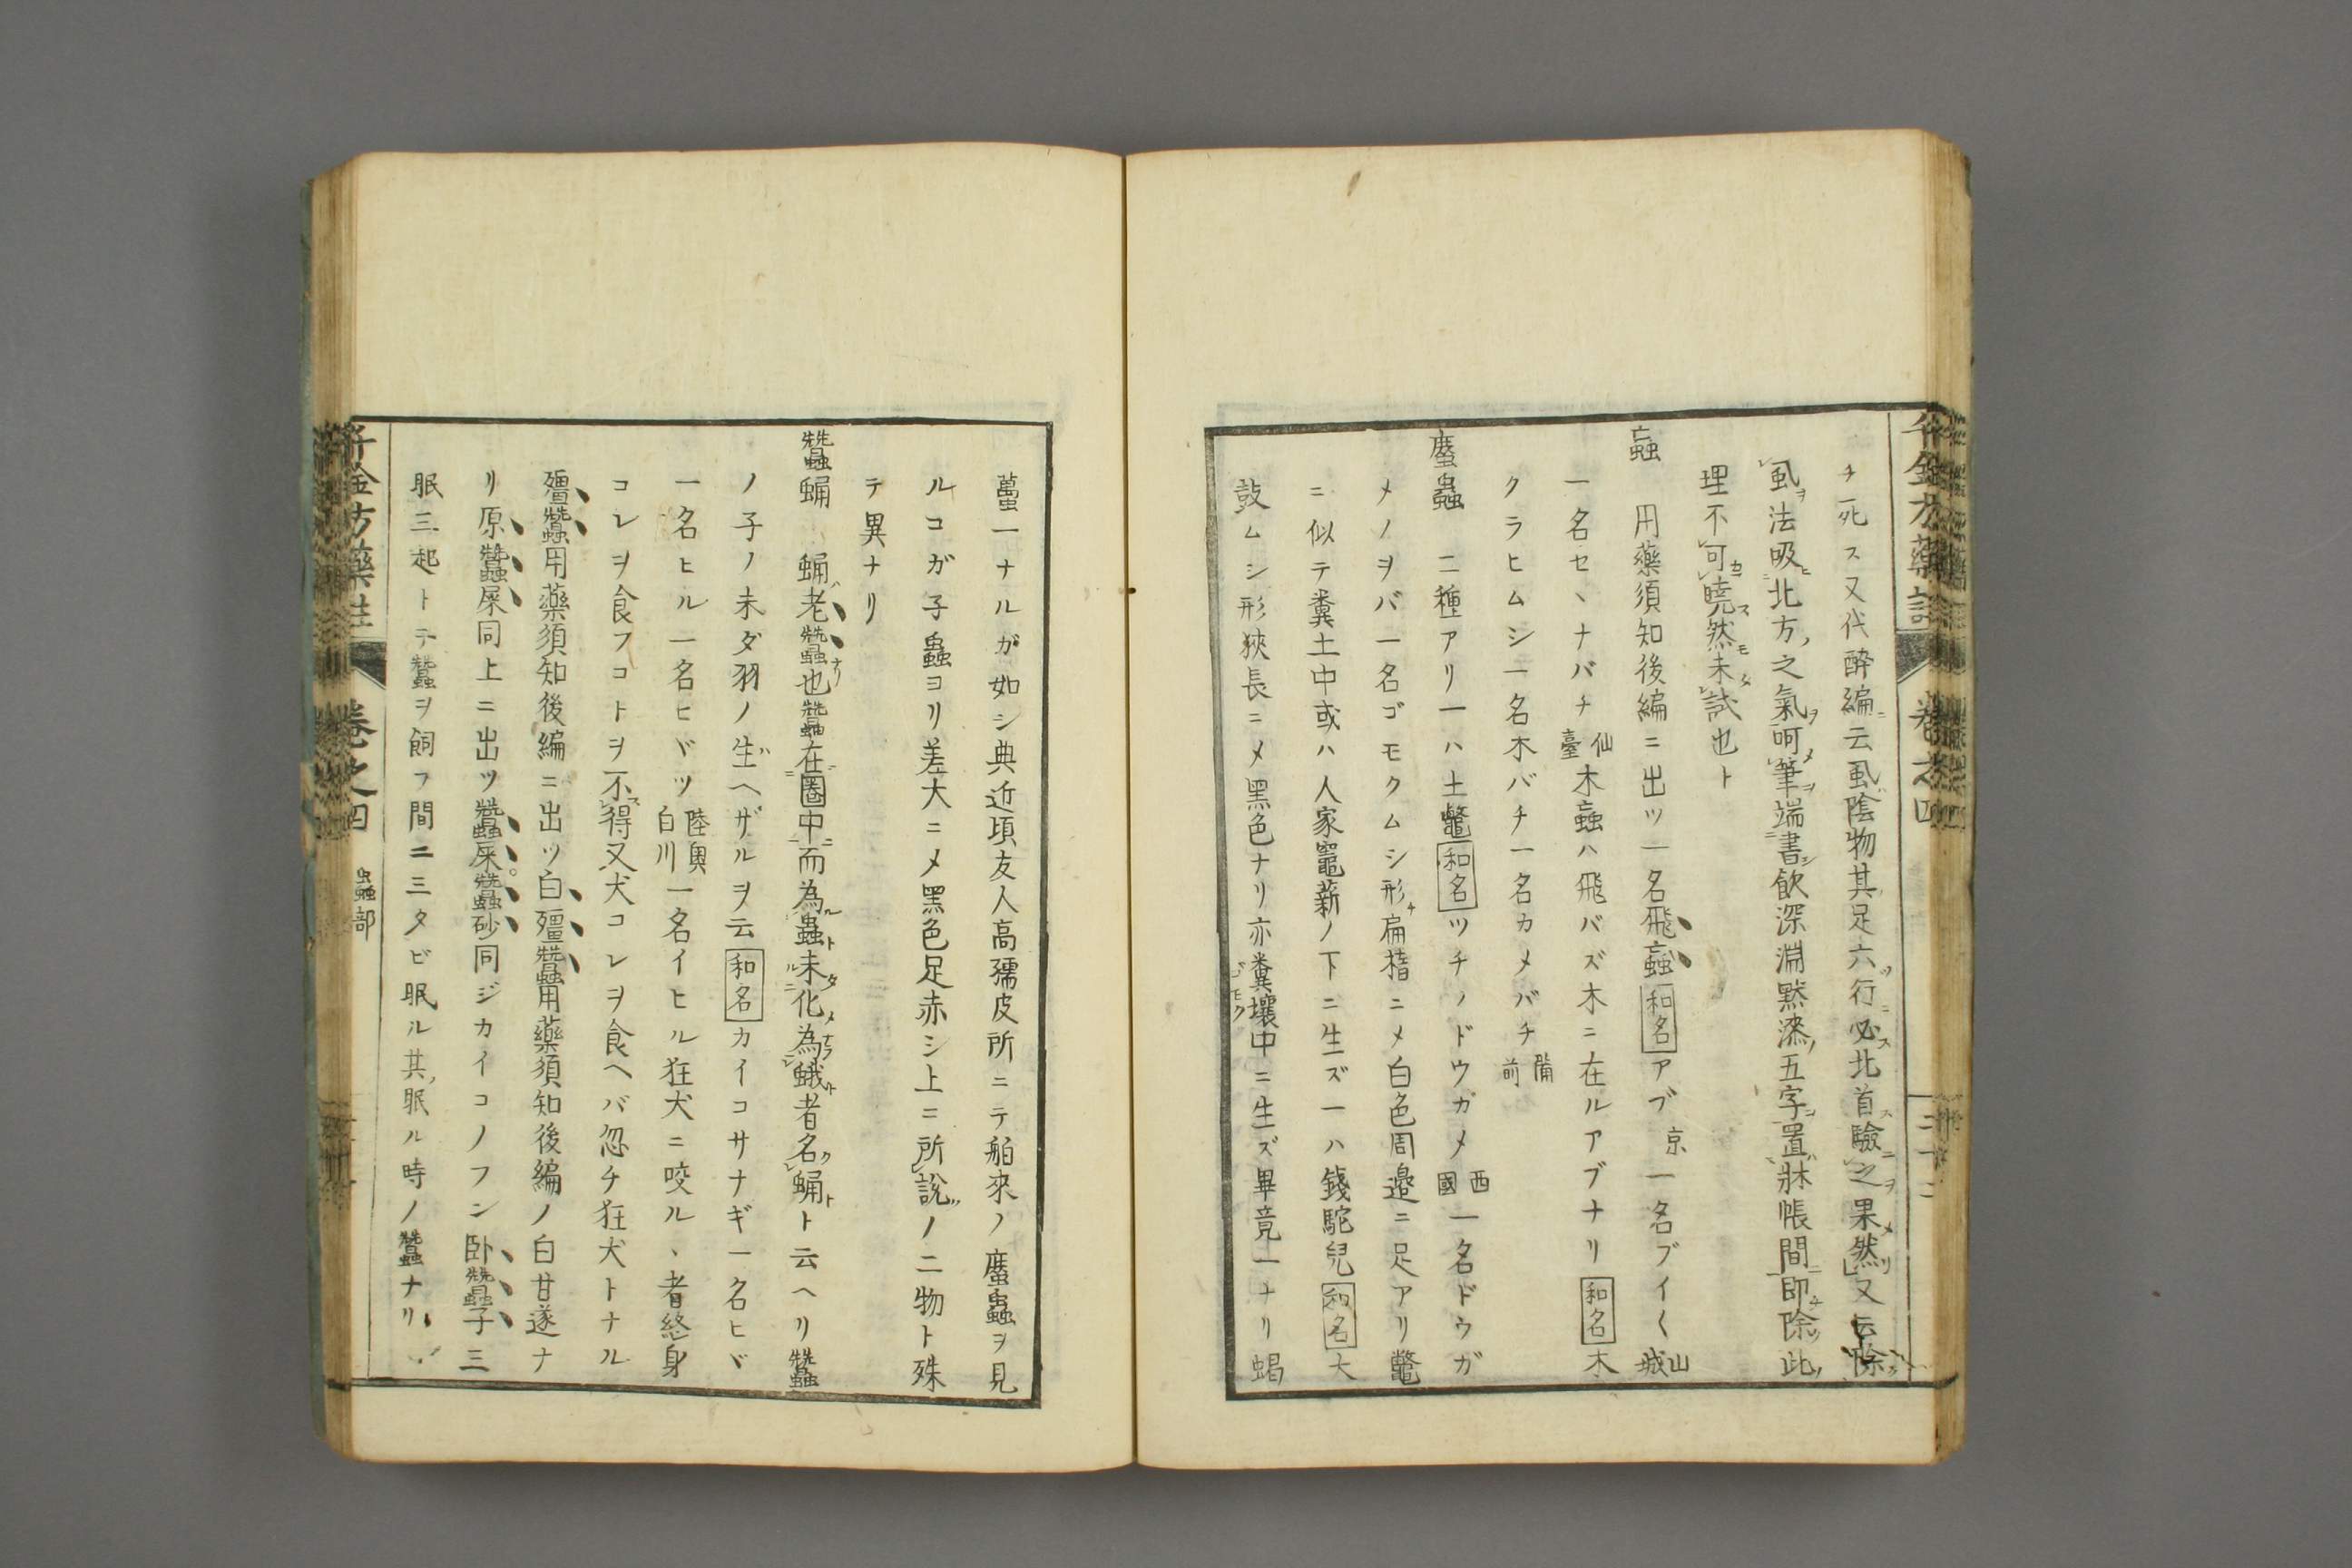 千金方藥註 卷之四
チ死ス又代醉編云虱陰物其足六行必北首驗之果然又云除
虱法吸北方之氣呵筆端書欽深淵默漆五字置牀帳間即除此
理不可曉然未試也ト
蝱 用藥須知後編ニ出ツ一名飛蝱和名アブ京一名ブイ〱山城
一名セヽナバチ仙臺木蝱ハ飛バズ木ニ在ルアブナリ和名木
クラヒムシ一名木バチ一名カメバチ備前
䗪蟲 二種アリ一ハ土鼈和名ツチノドウガメ西國一名ドウガ
メノヲバ一名ゴモクムシ形扁楕ニメ白色周邉ニ足アリ鼈
ニ似テ糞土中或ハ人家竈薪ノ下ニ生ズ一ハ錢駝兒和名大
鼓ムシ形狹長ニメ黒色ナリ亦糞壤中ニ生ズ畢竟一ナリ蝎
蠆一ナルガ如シ典近頃友人高孺皮所ニテ舶來ノ䗪蟲ヲ見
ルコガ子蟲ヨリ差大ニメ黒色足赤シ上ニ所說ノ二物ト殊
テ異ナリ
蠶蛹 蛹老蠶也蠶在圈中而為蟲未化為蛾者名蛹ト云ヘリ蠶
ノ子ノ未ダ羽ノ生ヘザルヲ云和名カイコサナギ一名ヒヾ
一名ヒル一名ヒヾツ陸奥白川一名イヒル狂犬ニ咬ルヽ者終身
コレヲ食フコトヲ不得又犬コレヲ食ヘバ忽チ狂犬トナル
殭蠶用藥須知後編ニ出ツ白殭蠶用藥須知後編ノ白甘遂ナ
リ原蠶屎同上ニ出ツ蠶屎。蠶砂同ジカイコノフン卧蠶子三
眠三起トテ蠶ヲ飼フ間ニ三タビ眠ル其眠ル時ノ蠶ナリ
千金方藥註 卷之四 蟲部